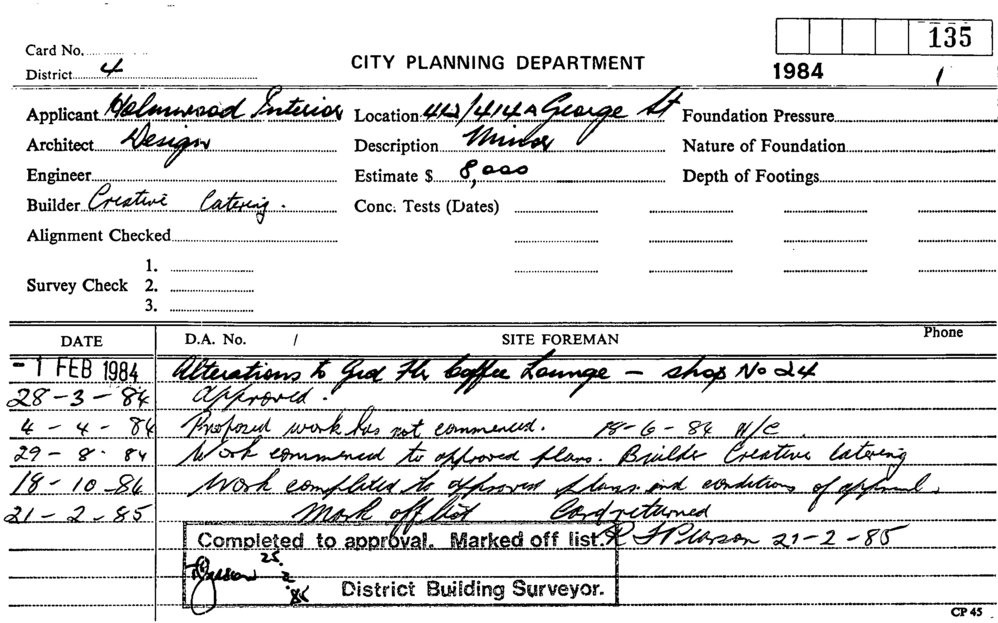 135
Card No.
District 4
CITY PLANNING DEPARTMENT
1984 1
Applicant Holmwood Interior
Location 412/414A George St
Foundation Pressure
Architect Design
Description Minor
Nature of Foundation
Engineer
Estimate $ 8,000
Depth of Footings
Builder Creative Catering.
Conc. Tests (Dates)
Alignment Checked
1.
Survey Check 2.
3.
DATE D.A. No. / SITE FOREMAN Phone
-1 FEB 1984 Alterations to Grd Flr Coffee Lounge - shop No 24
28-3-84 Approved.
4-4-84 Proposed work has not commenced. 18-6-84 N/C
29-8-84 Work commenced to approved plans. Builder Creative Catering
18-10-84 Work completed to approved plans and conditions of approval.
21-2-85 Mark off list Card returned
Completed to approval. Marked off list. R F Pearson 21-2-85
25.2.85
District Building Surveyor.
CP 45